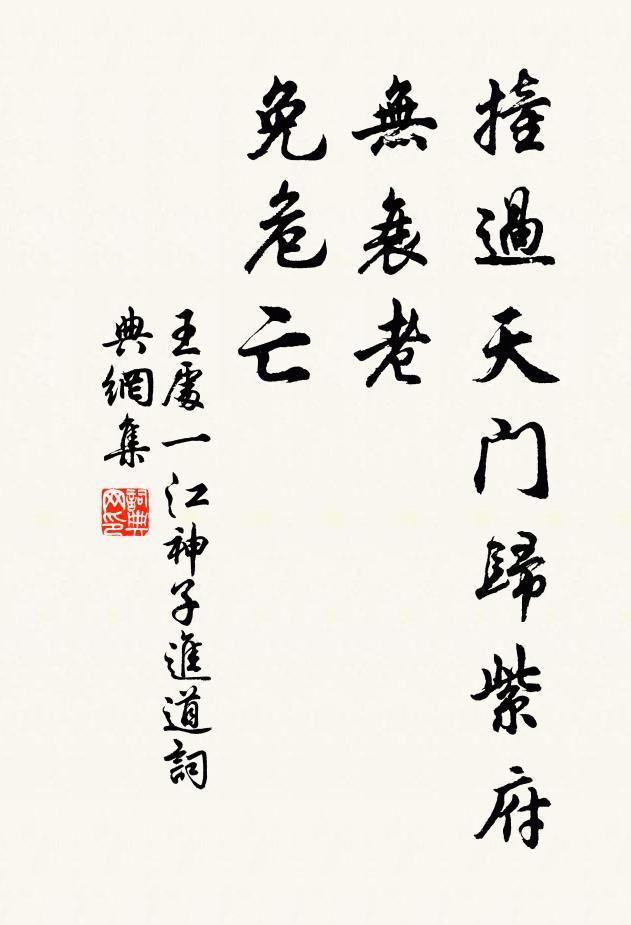 撞過天門歸紫府
無衰老
免危亡
王處一江神子進道詞
典網集
詞典网印